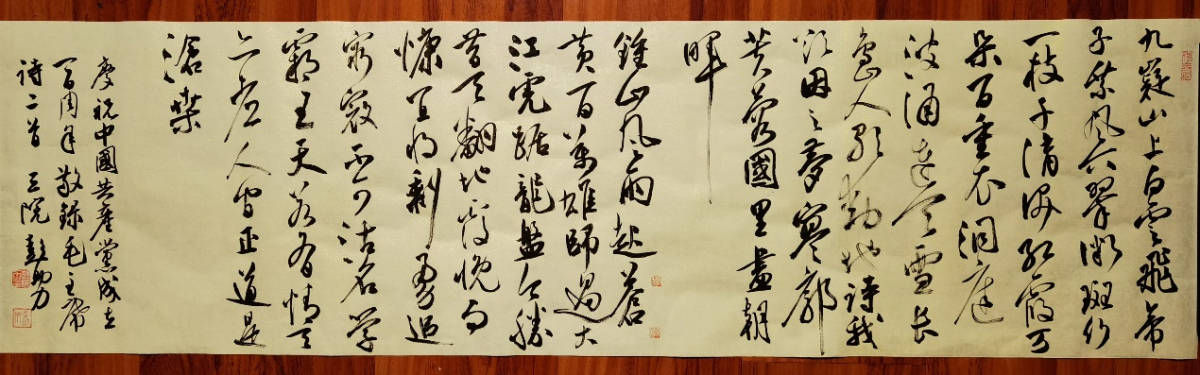 九嶷山上白雲飛帝
子乘风下翠微斑竹
一枝千滴淚红霞万
朵百重衣洞庭
波涌连天雪长
岛人歌動地詩我
欲因之夢寥廓
芙蓉國里盡朝
暉
鍾山风雨起蒼
黄百萬雄師過大
江虎踞龍盤今勝
昔天翻地覆慨而
慷宜将剩勇追
穷寇不可沽名学
霸王天若有情天
亦老人间正道是
滄桑
慶祝中國共產黨成立
一百周年敬録毛主席
詩二首 三院 彭